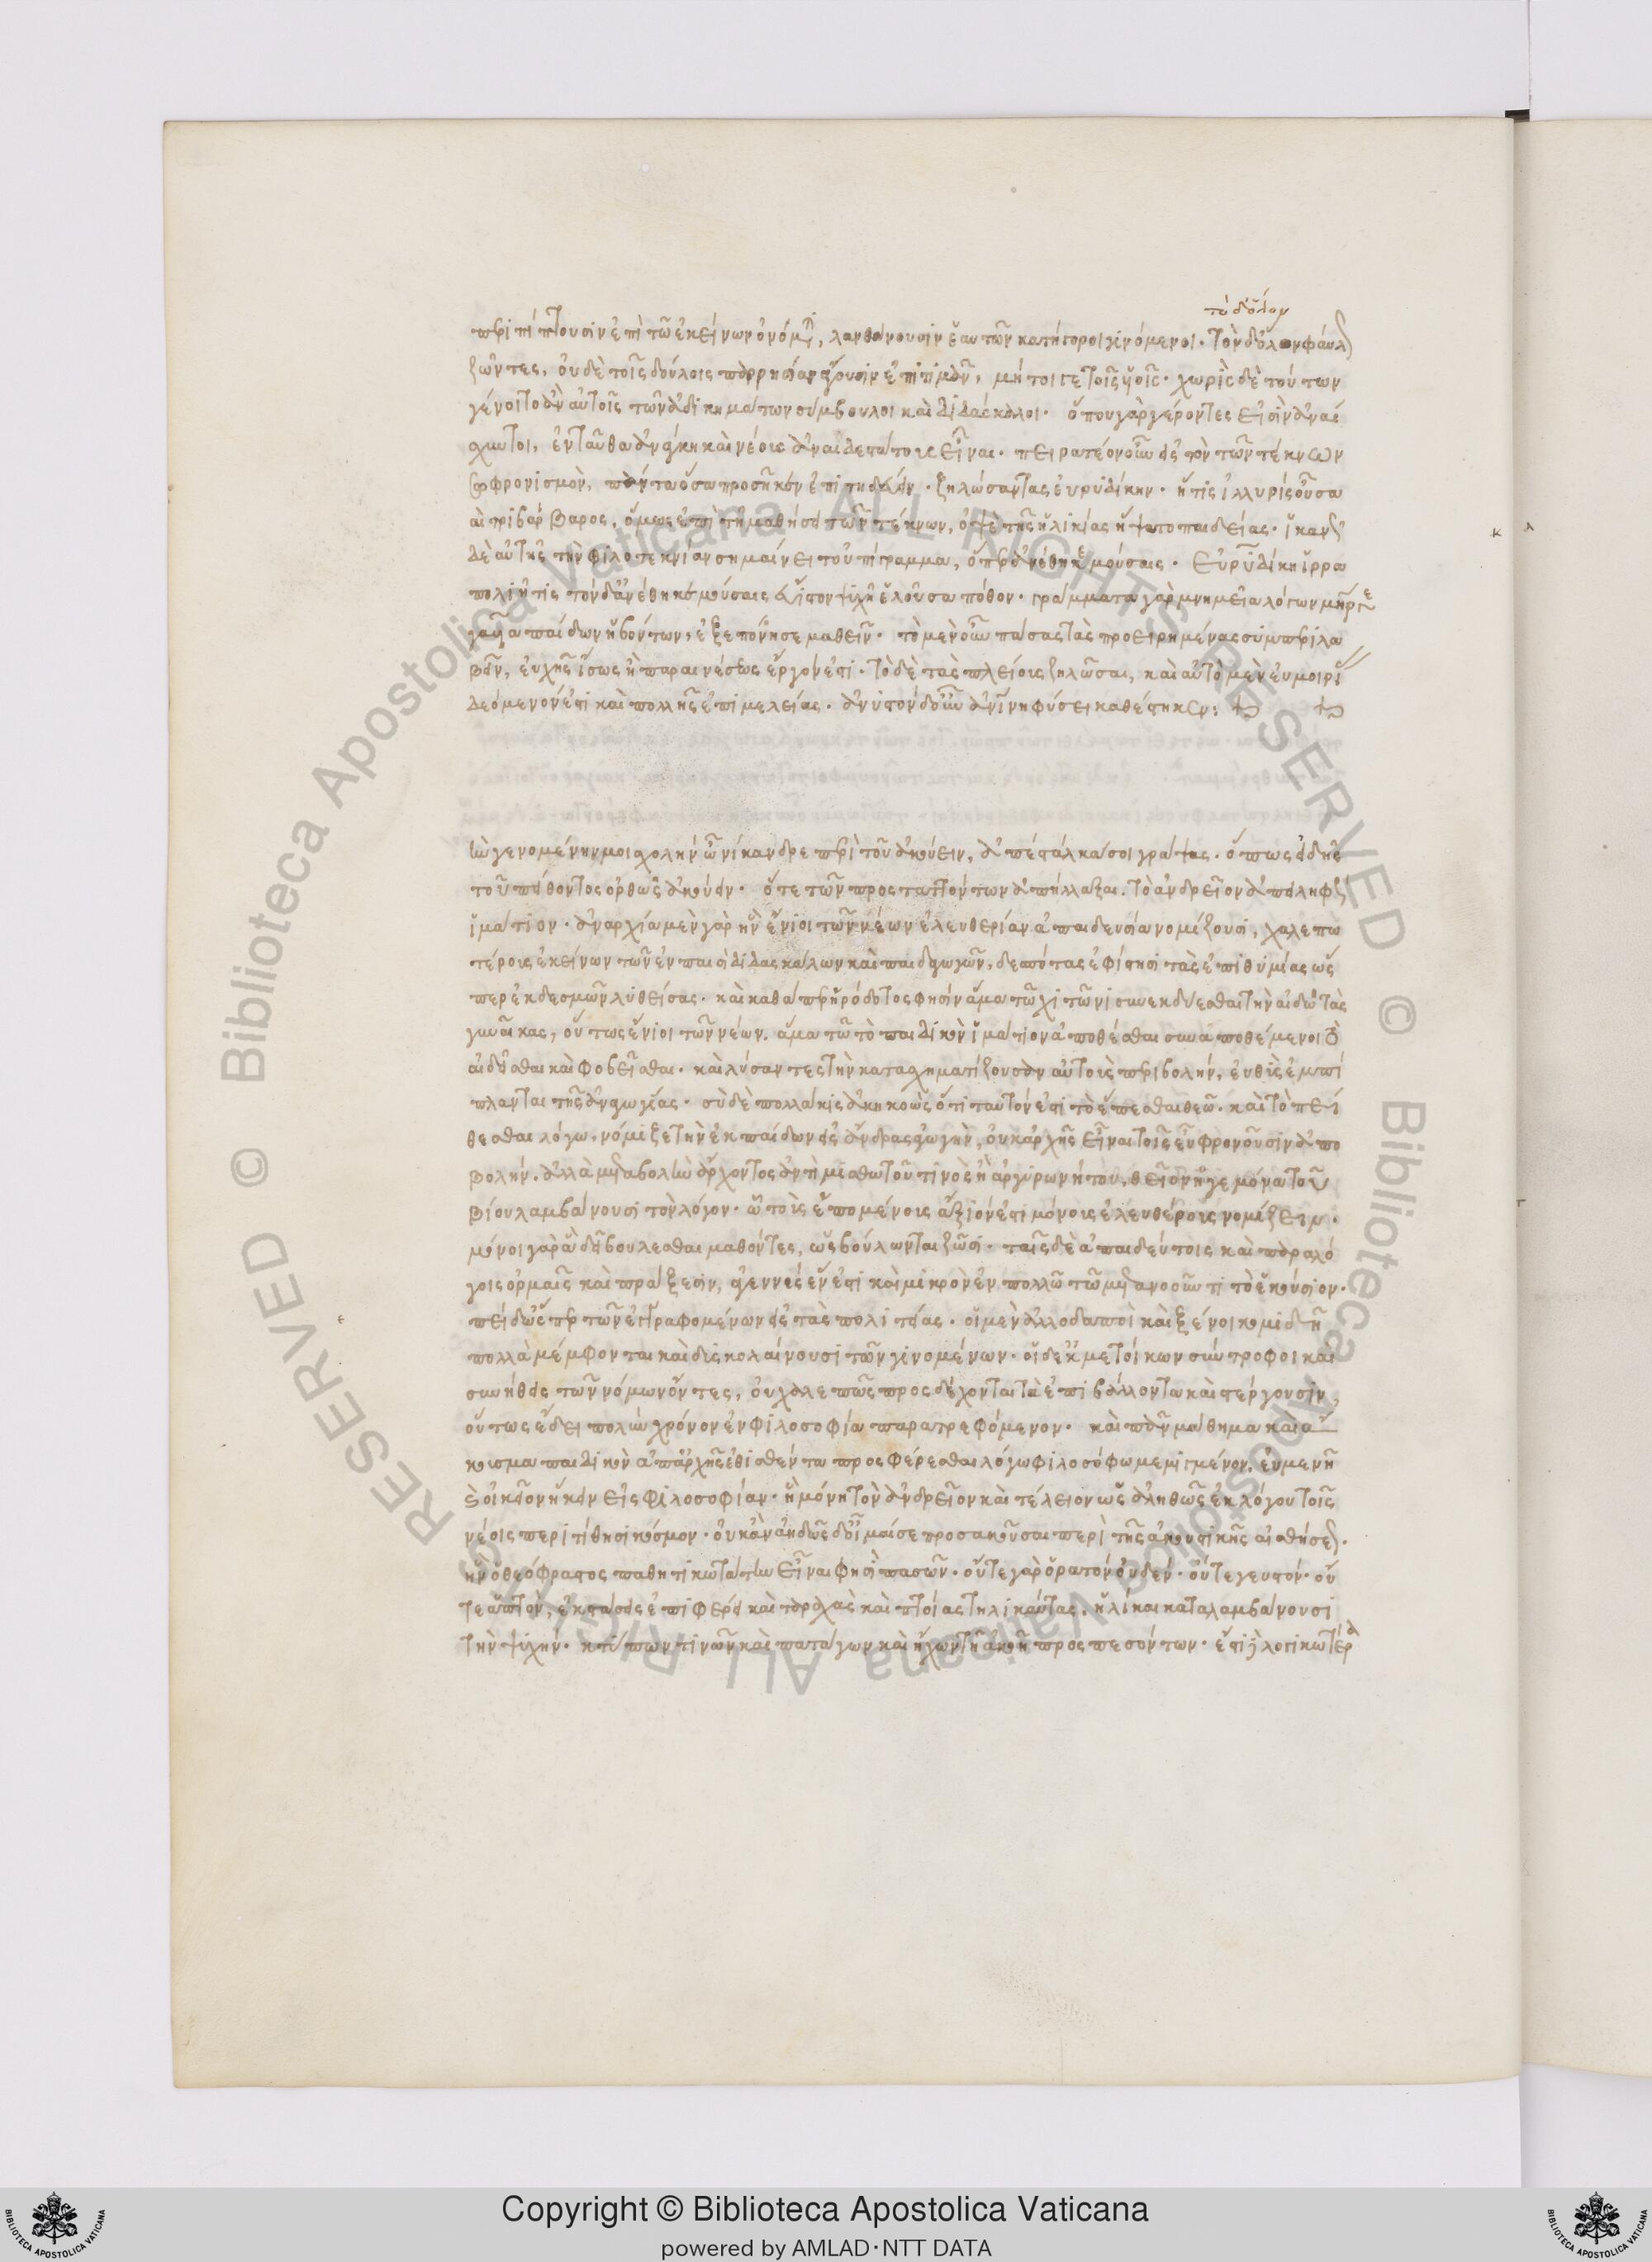 τὸν ὅλον
περιπίπτουσιν ἐπὶ τῶ ἐκείνων ὀνόματι, λανθάνουσιν ἑαυτῶν κατήγοροι γινόμενοι. τὸν δ' ὅλον φαύλως
ζῶντες, οὐδὲ τοῖς δούλοις παρρησίαν ἄγουσιν ἐπιτιμᾶν, μήτοιγε τοῖς υἱοῖς. χωρὶς δὲ τούτων
γένοιντο ἂν αὐτοῖς τῶν ἀδικημάτων σύμβουλοι καὶ διδάσκαλοι. ὅπου γὰρ γέροντες εἰσὶν ἀναί
σχυντοι, ἐνταῦθα ἀνάγκη καὶ νέους ἀναιδεστάτους εἶναι. πειρατέον οὖν εἰς τὸν τῶν τέκνων
σωφρονισμὸν, πάνθ' ὅσα προσῆκεν ἐπιτηδεύειν. ζηλώσαντας εὐρυδίκην. ἥτις ἰλλυρὶς οὖσα
καὶ τριβάρβαρος, ὅμως ἐπὶ τῆ μαθήσει τῶν τέκνων, ὀψὲ τῆς ἡλικίας ἥψατο παιδείας. ἱκανῶς
δὲ αὐτῆς τὴν φιλοτεκνίαν σημαίνει τοὐπίγραμμα, ὅπερ ἀνέθηκε μούσαις. Εὐρυδίκη ἱρρα
πολιῆτις τόνδ' ἀνέθηκε μούσαις εὔιστον ψυχῆ ἑλοῦσα πόθον. γράμματα γὰρ μνημεῖα λόγων μήτηρ γε
γαῦα παίδων ἡβόντων, ἐξεπόνησε μαθεῖν. τὸ μὲν οὖν πάσας τὰς προειρημένας συμπεριλα
βεῖν, εὐχῆς ἴσως ἢ παραινέσεως ἔργον ἐστί. τὸ δὲ τὰς πλείους ζηλῶσαι, καὶ αὐτὸ μὲν εὐμοιρί
δεόμενόν ἐστι καὶ πολλῆς ἐπιμελείας. ἀνυστὸν δ' οὖν ἀνθρωπίνη φύσει καθέστηκεν:
τὴν γενομένην μοι σχολὴν ὦ νίκανδρε περὶ τοῦ ἀκούειν, ἀπέσταλκά σοι γράψας. ὅπως εἰδῆς
τοῦ πείθοντος ὀρθῶς ἀκούειν. ὅτε τῶν προσταττόντων ἀπήλλαξαι. τὸ ἀνδρεῖον ἀπειληφὼς
ἱμάτιον. ἀναρχία μὲν γὰρ ἣν ἔνιοι τῶν νέων ἐλευθερίαν ἀπαιδευσία νομίζουσι, χαλεπω
τέρους ἐκείνων τῶν ἐν παισὶ διδασκάλων καὶ παιδαγωγῶν, δεσπότας ἐφίστησι τὰς ἐπιθυμίας ὥς
περ ἐκ δεσμῶν λυθείσας. καὶ καθάπερ ἡρόδοτος φησὶν ἅμα τῶ χιτῶνι συνεκδύεσθαι τὴν αἰδῶ τὰς
γυναῖκας, οὕτως ἔνιοι τῶν νέων. ἅμα τῶ τὸ παιδικὸν ἱμάτιον ἀποθέσθαι συναποθέμενοι τὸ
αἰδεῖσθαι καὶ φοβεῖσθαι. καὶ λύσαντες τὴν κατασχηματίζουσαν αὐτοὺς περιβολήν, εὐθὺς ἐμπί
πλανται τῆς ἀναγωγίας. σὺ δὲ πολλάκις ἀκηκοὼς ὅτι ταυτόν ἐστι τὸ ἕπεσθαι θεῶ. καὶ τὸ πεί
θεσθαι λόγω, νόμιζε τὴν ἐκ παίδων εἰς ἄνδρας ἀγωγὴν, οὐκ ἀρχῆς εἶναι τοῖς εὖ φρονοῦσιν ἀπο
βολήν. ἀλλὰ μεταβολὴν ἄρχοντος ἀντὶ μισθωτοῦ τινὸς ἢ ἀργυρωνήτου, θεῖον ἡγεμόνα τοῦ
βίου λαμβάνουσι τὸν λόγον. ὧ τοὺς ἑπομένους ἄξιόν ἐστι μόνους ἐλευθέρους νομίζειν.
μόνοι γὰρ ἃ δεῖ βούλεσθαι μαθόντες, ὡς βούλωνται ζῶσι. ταῖς δὲ ἀπαιδεύτοις καὶ παραλό
γοις ὁρμαῖς καὶ πράξεσιν, ἀγεννές ἔνεστι καὶ μικρὸν ἐν πολλῶ τῶ μετανοοῦντι τὸ ἑκούσιον.
πεὶ δ' ὥσπερ τῶν ἐγγραφομένων εἰς τὰς πολιτείας. οἱ μὲν ἀλλοδαποὶ καὶ ξένοι κομιδῆ
πολλὰ μέμφονται καὶ δυσκολαίνουσι τῶν γινομένων. οἱ δ' ἐκ μετοίκων σύντροφοι καὶ
συνήθεις τῶν νόμων ὄντες, οὐ χαλεπῶς προσδέχονται τὰ ἐπιβάλλοντα καὶ στέργουσιν,
οὕτως ἔδει πολὺν χρόνον ἐν φιλοσοφία παρατρεφόμενον. καὶ πᾶν μάθημα καὶ ἄ
κουσμα παιδικὸν ἀπ' ἀρχῆς ἐθισθέντα προσφέρεσθαι λόγω φιλοσόφω μεμιγμένον, εὐμενῆ
καὶ οἰκεῖον ἥκειν εἰς φιλοσοφίαν. ἣ μόνη τὸν ἀνδρεῖον καὶ τέλειον ὡς ἀληθῶς ἐκ λόγου τοῖς
νέοις περιτίθησι κόσμον. οὐκ ἂν ἀηδῶς δ' οἶμαί σε προσακοῦσαι περὶ τῆς ἀκουστικῆς αἰσθήσεως.
ἣν ὁ θεόφραστος παθητικωτάτην εἶναι φησὶ πασῶν. οὔτε γὰρ ὁρατὸν οὐδέν. οὔτε γευστόν. οὔ
τε ἁπτὸν, ἐκστάσεις ἐπιφέρει καὶ ταραχὰς καὶ πτοίας τηλικαύτας, ἡλίκαι καταλαμβάνουσι
τὴν ψυχήν. κτύπων τινῶν καὶ πατάγων καὶ ἤχων τῆ ἀκοῆ προσπεσόντων. ἔστι δὲ λογικωτέρα